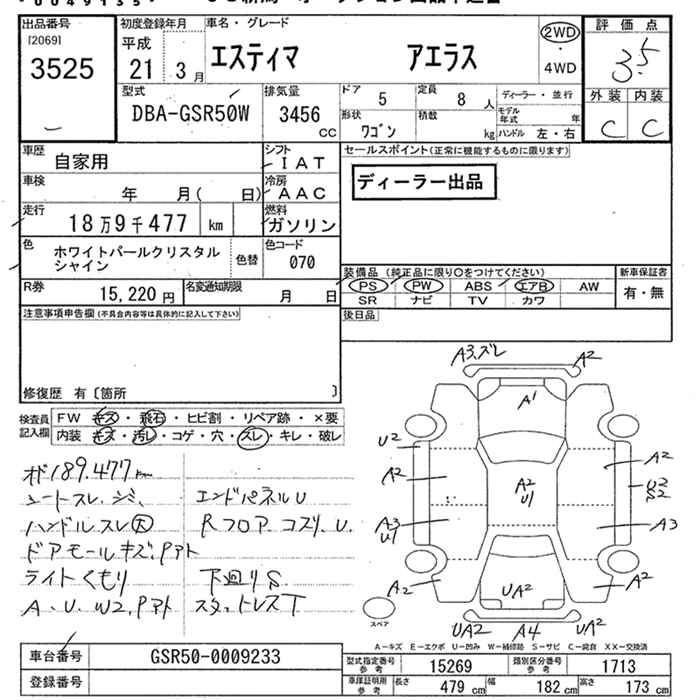 出品番号
[2069]
3525
初度登録年月
平成
21 3月
車名・グレード
エスティマ アエラス
2WD
・
4WD
評価点
3.5
外装 内装
C C
型式
DBA-GSR50W
排気量
3456 cc
ドア 5
定員 8 人
ディーラー・並行
モデル年式 年
形状 ワゴン
積数 kg
ハンドル 左・右
車歴 自家用
シフト IAT
車検 年 月( 日)
冷房 AAC
走行 18万9千477 km
燃料 ガソリン
色 ホワイトパールクリスタル
シャイン
色替
色コード 070
R券 15,220 円
名変通知期限 月 日
セールスポイント(正常に機能するものに限ります)
ディーラー出品
装備品 (純正品に限り○をつけてください)
PS PW ABS エアB AW
SR ナビ TV カワ
新車保証書
有・無
後日品
注意事項申告欄 (不具合内容等は具体的に記入して下さい)
修復歴 有〔箇所 〕
検査員
記入欄
FW キズ・飛石・ヒビ割・リペア跡・×要
内装・キズ・汚レ・コゲ・穴・スレ・キレ・破レ
189.477 km
シートスレ、シミ、 エンドパネルU
ハンドルスレ大 Rフロア コスリ、U、
ドアモールキズ、Pアト
ライトくもり 下廻りS
A、U、W2、Pアト スタットレスT
A3、ズレ A2
A1
U2
A2
A2
A2
U1
U2
S2
A3
U1
A3
A2
A2
UA2
UA2 A4 UA2
スペア
A-キズ E-エクボ U-凹み W-補修跡 S-サビ C-腐食 XX-交換済
車台番号 GSR50-0009233
登録番号
型式指定番号 参考 15269
類別区分番号 参考 1713
車庫証明用 参考
長さ 479 cm
幅 182 cm
高さ 173 cm